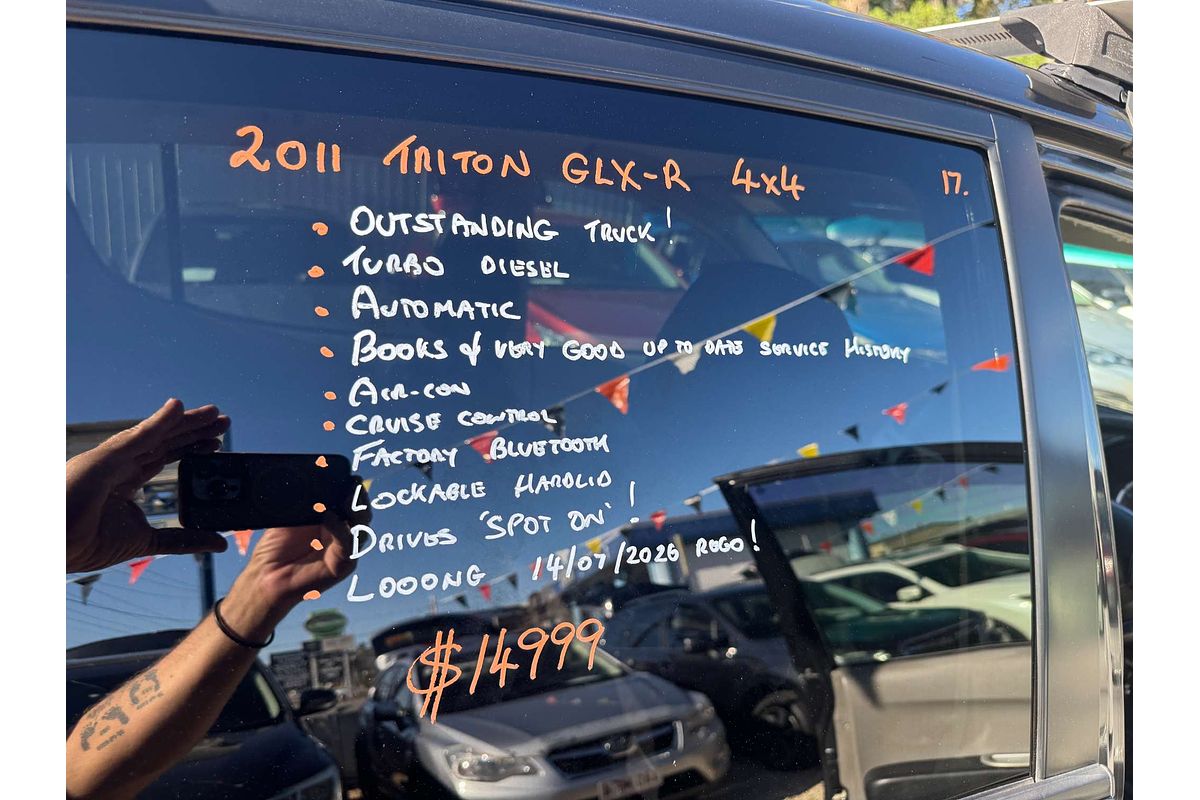 2011 TRITON GLX-R 4x4
17.
• OUTSTANDING TRUCK!
• TURBO DIESEL
• AUTOMATIC
• BOOKS & VERY GOOD UP TO DATE SERVICE HISTORY
• AIR-CON
• CRUISE CONTROL
• FACTORY BLUETOOTH
• LOCKABLE HARDLID
• DRIVES 'SPOT ON'!
• LOOONG 14/07/2026 REGO!
$14999